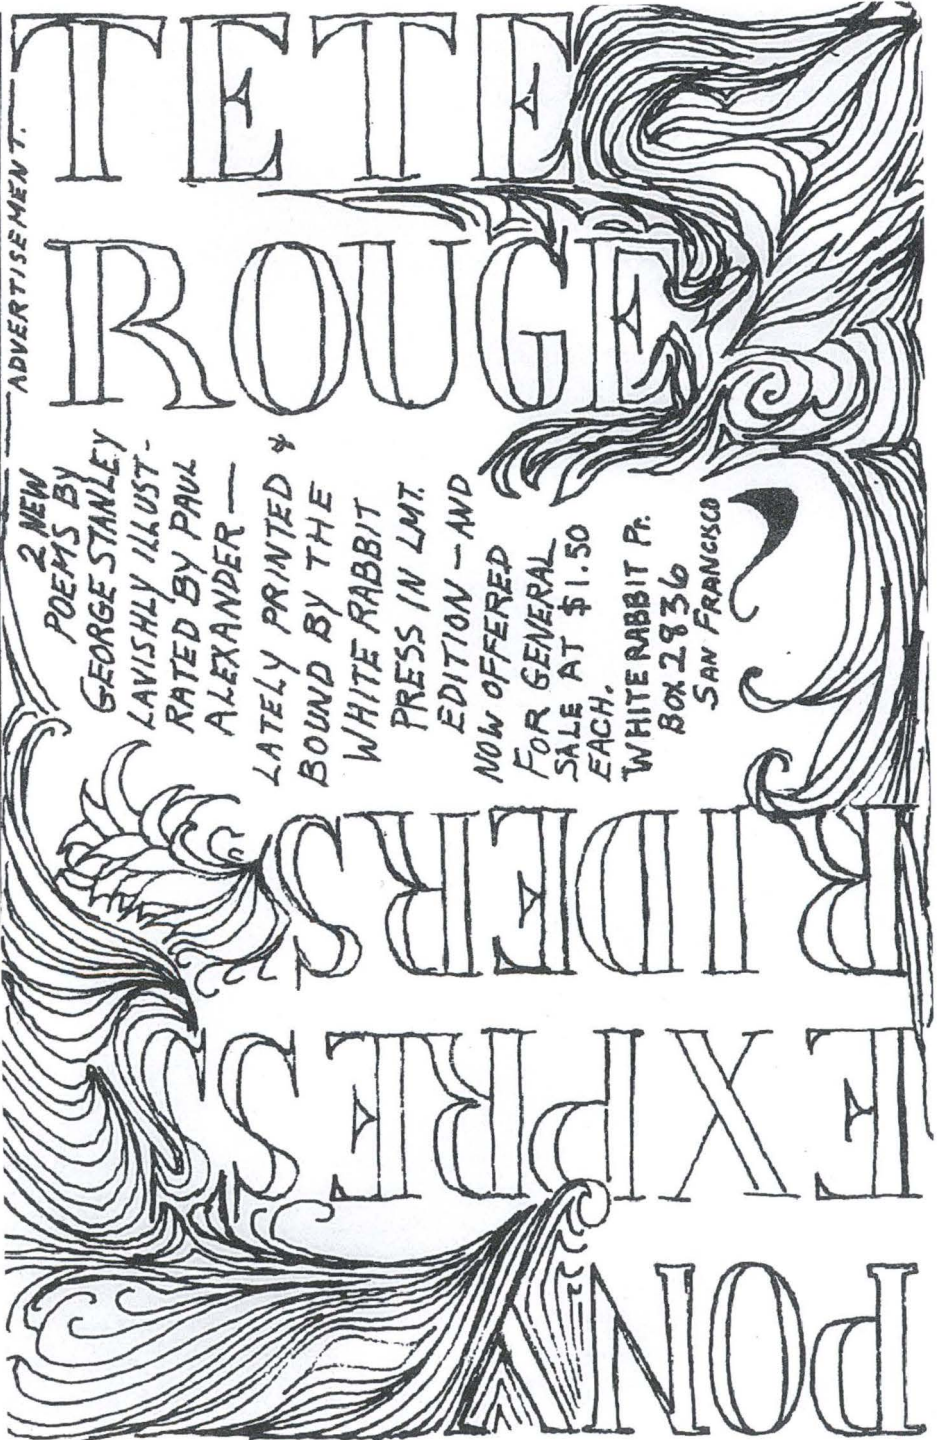 ADVERTISEMENT.
TETE
ROUGE
2 NEW
POEMS BY
GEORGE STANLEY
LAVISHLY ILLUST-
RATED BY PAUL
ALEXANDER—
LATELY PRINTED &
BOUND BY THE
WHITE RABBIT
PRESS IN LMT.
EDITION—AND
NOW OFFERED
FOR GENERAL
SALE AT $1.50
EACH.
WHITE RABBIT Pr.
BOX 2936
SAN FRANCISCO
PONY
EXPRESS
RIDERS